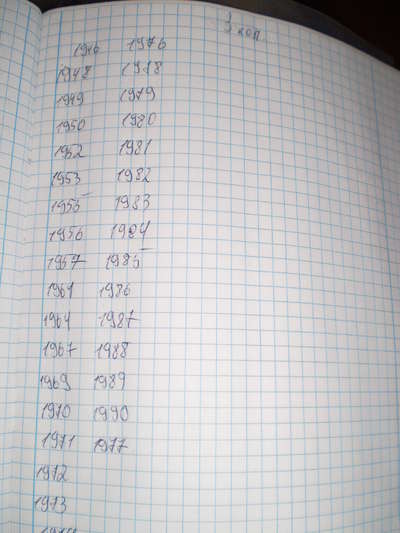 3 коп
1946 1976
1948 1978
1949 1979
1950 1980
1952 1981
1953 1982
1955 1983
1956 1984
1957 1985
1961 1986
1964 1987
1967 1988
1969 1989
1970 1990
1971 1977
1972
1973